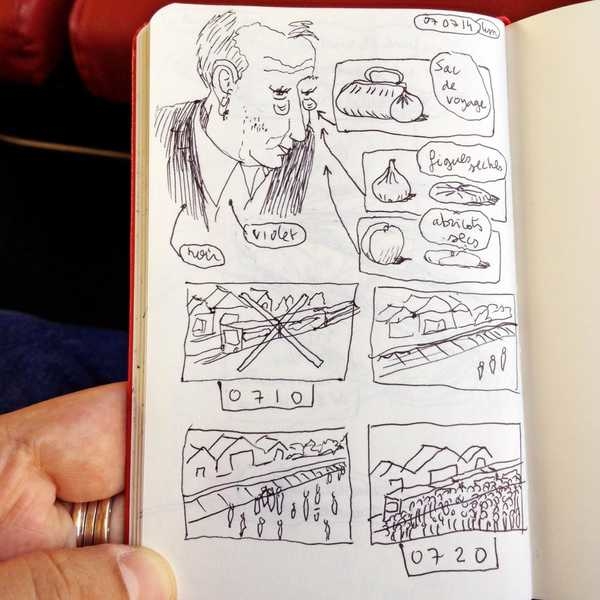 07 07 14 lun
Sac
de
voyage
figues
sèches
abricots
secs
violet
noir
0710
0720